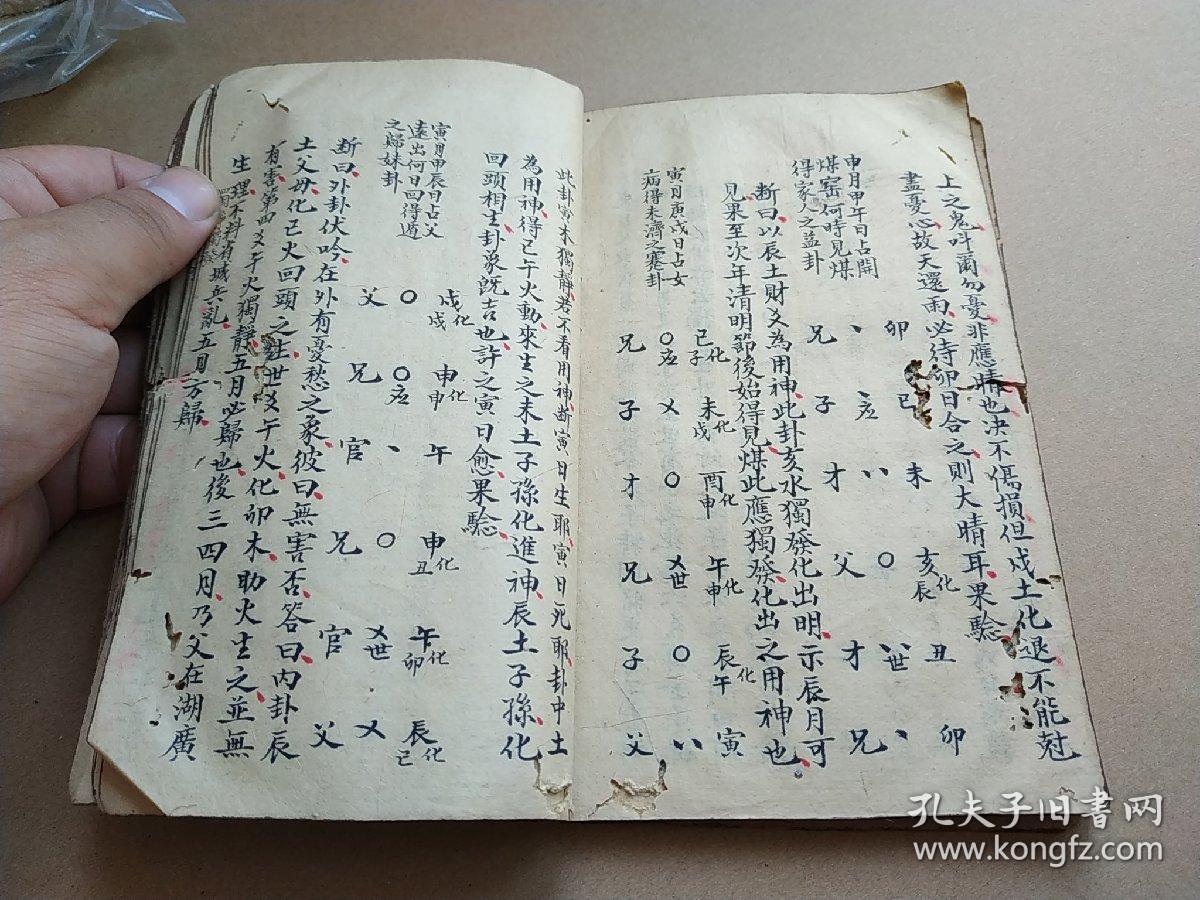 上之鬼吁爾勿憂非應晴也决不傷損但戍土化退不能尅
盡憂心故天還雨必待卯日合之則大晴耳果驗
申月甲午日占開
煤窑何時見煤
得家人之益卦
卯 巳 未 亥化辰 丑 卯
、 、应 〃 〇 〃世 、
兄 子 才 父 才 兄
断曰以辰土財爻為用神此卦亥水獨發化出明示辰月可
見果至次年清明節後始得見煤此應獨發化出之用神也
寅月庚戍日占女
病得未濟之蹇卦
巳化子 未化戍 酉化申 午化申 辰化午 寅
〇应 乂 〇 乂世 〇 〃
兄 子 才 兄 子 父
此卦寅木獨静若不看用神断寅日生耶寅日死耶卦中土
為用神得巳午火動來生之未土子孫化進神辰土子孫化
回頭相生卦象既吉也許之寅日愈果驗
寅月甲辰日占父
遠出何日回得遁
之歸妹卦
戍化戍 申化申 午 申化丑 午化卯 辰化巳
〇 〇应 、 〇 乂世 乂
父 兄 官 兄 官 父
断曰外卦伏吟在外有憂愁之象彼曰無害否答曰内卦辰
土父母化巳火回頭之生世爻午火化卯木助火生之並無
有害第四爻午火獨静五月必歸也後三四月乃父在湖廣
生理不料有城兵亂五月方歸
孔夫子旧書网
www.kongfz.com